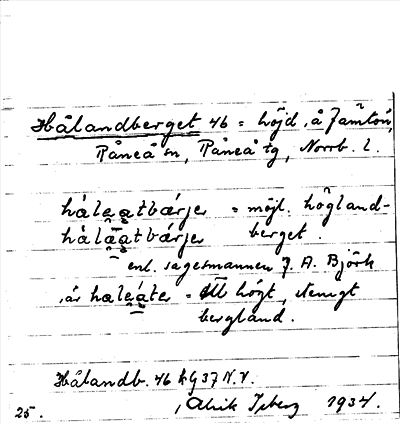 Hålandberget 46 = höjd, å Jämtön,
Råneå sn, Råneå tg, Norrb. l.
håleatbárjer = möjl. högland-
håláatbárjer berget.
enl. sagesmannen J. A. Björk
är haleáter = högt, stenigt
bergland.
Hålandb. 46 kg 37 N.V.
25. Alrik Isberg 1934.